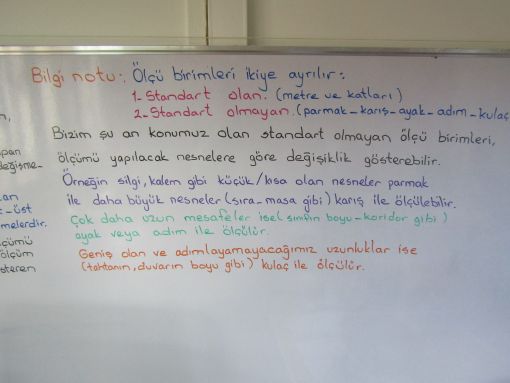 Bilgi notu: Ölçü birimleri ikiye ayrılır:
1-Standart olan. (metre ve katları)
2-Standart olmayan. (parmak-karış-ayak-adım-kulaç
Bizim şu an konumuz olan standart olmayan ölçü birimleri,
ölçümü yapılacak nesnelere göre değişiklik gösterebilir.
Örneğin silgi, kalem gibi küçük/kısa olan nesneler parmak
ile daha büyük nesneler (sıra-masa gibi) karış ile ölçülebilir.
Çok daha uzun mesafeler ise (sınıfın boyu-koridor gibi)
ayak veya adım ile ölçülür.
Geniş olan ve adımlayamayacağımız uzunluklar ise
(tahtanın, duvarın boyu gibi) kulaç ile ölçülür.
değişme-
-üst
melerdir.
ölçüm
steren